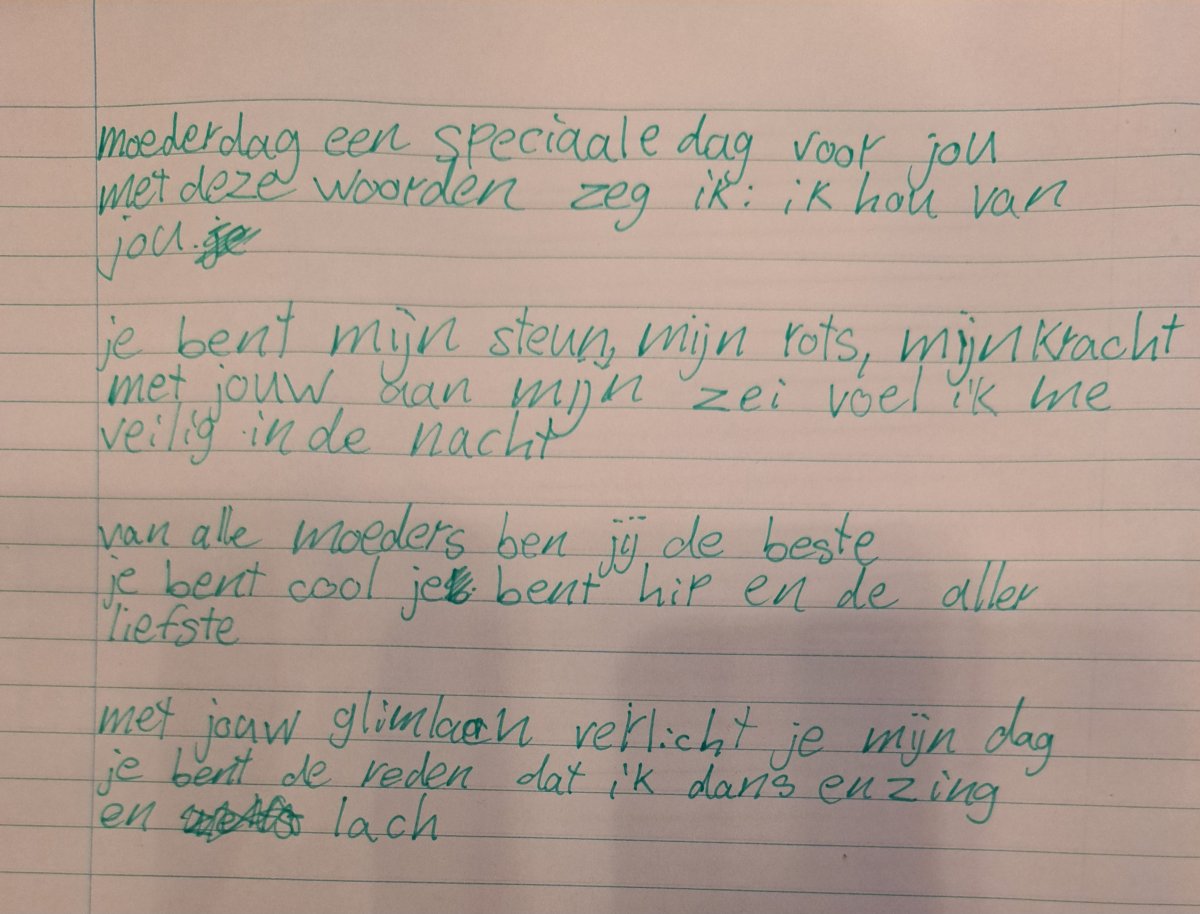 moederdag een speciaale dag voor jou
met deze woorden zeg ik: ik hou van
jou.
je bent mijn steun, mijn rots, mijn kracht
met jouw aan mijn zei voel ik me
veilig in de nacht
van alle moeders ben jij de beste
je bent cool je bent hip en de aller
liefste
met jouw glimlach verlicht je mijn dag
je bent de reden dat ik dans en zing
en lach